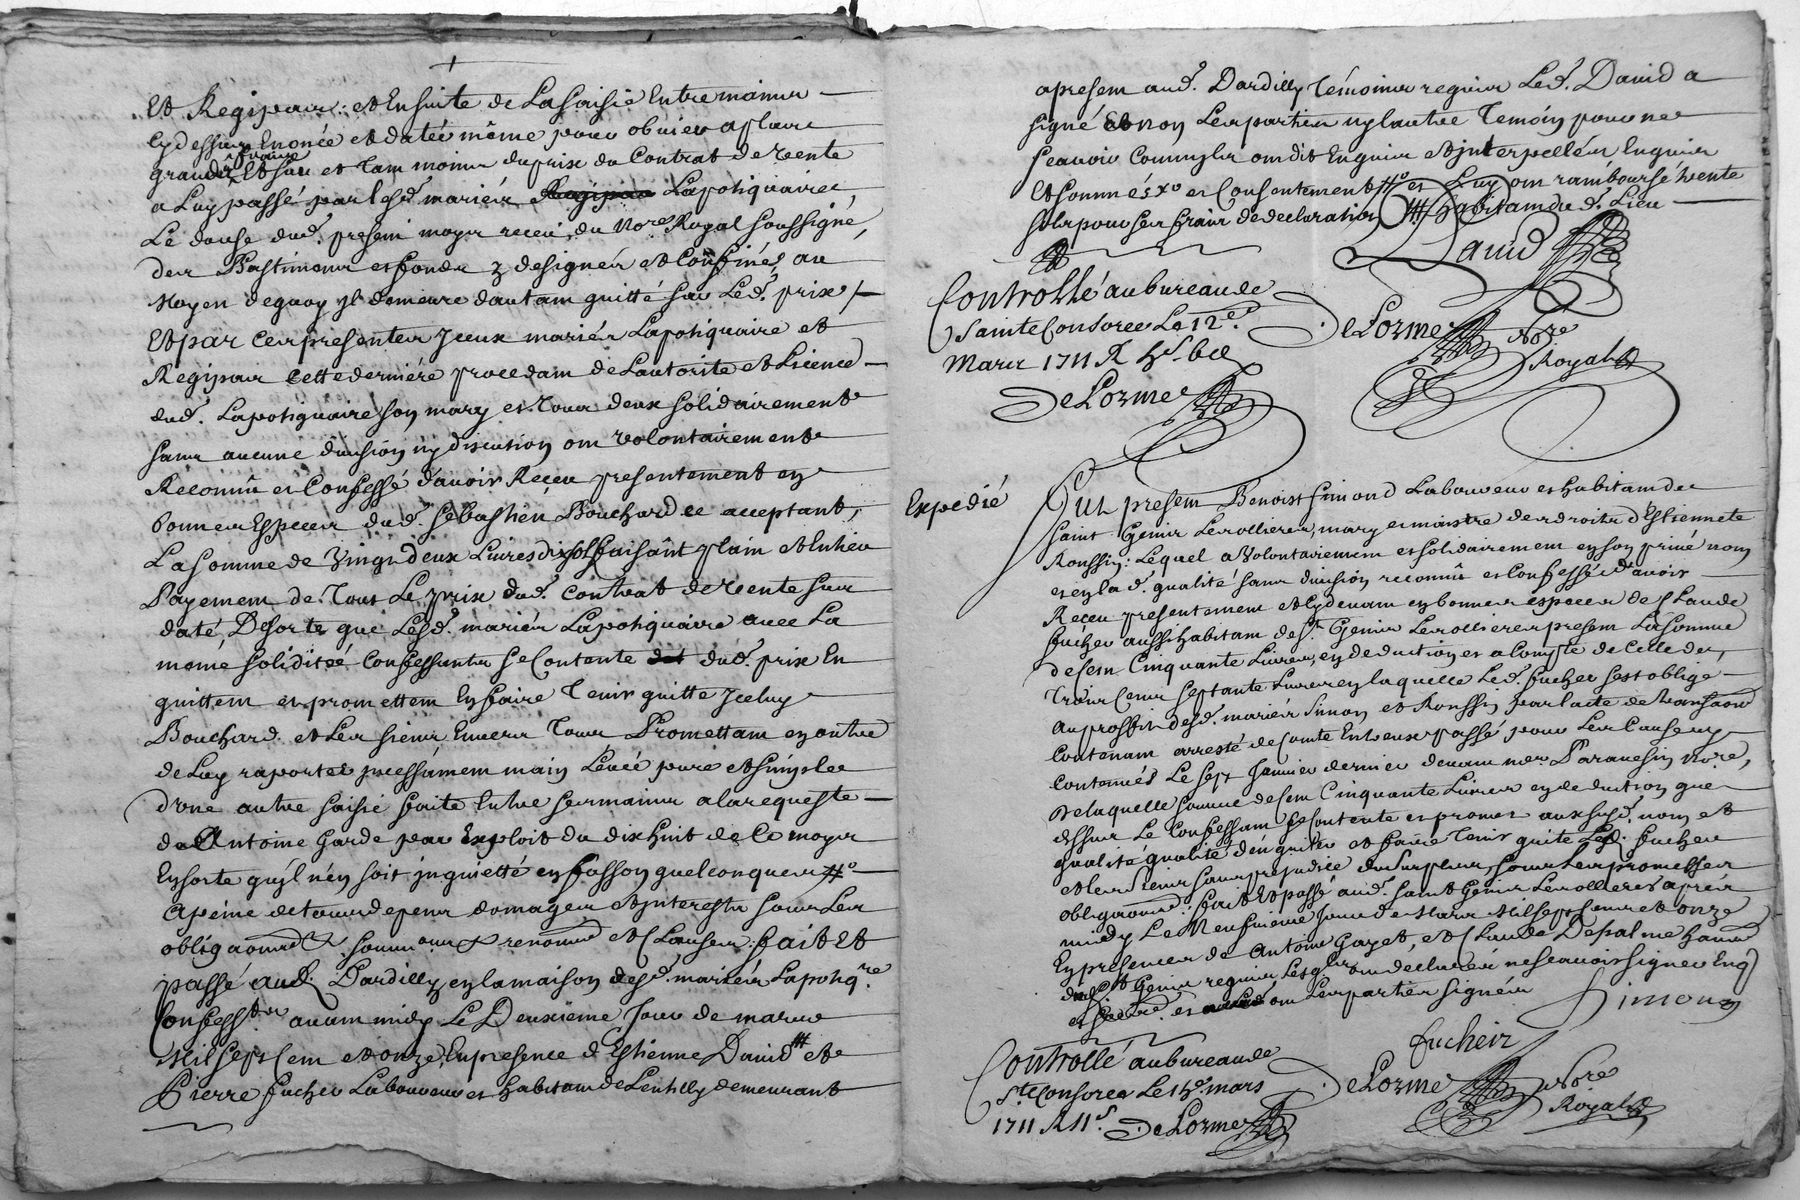 Et Regipaux: et Ensuite de La Saisie Entre mains
Cy dessus Enoncé et datée même pour obvier a plus
grands Et sur et Tant moins du prix du Contrat de Vente
frais
a Luy passé par lesd. mariés Lapotiquaire
Le douse dud. present moys receu du No.re Royal soussigné,
des Bastiments et fonds y designés et Confinés, au
Moyen de quoy jl demeure d'autant quitté sur Led. prix /
Et par Ces presentes Jceux mariés Lapotiquaire et
Regipaux Cette derniére procedant de L'autorite et Licence
dud. Lapotiquaire son mary et Tous deux solidairement
sans aucune division ny discution ont volontairement
Reconnû et Confessé d'avoir Receu presentement en
bonnes Especes dud. Sébastien Bouchard ce acceptant,
La somme de Vingt deux Livres dix sols faisant plain et Entier
Payement de Tout Le prix dud. Contrat de Vente sus
daté, De sorte que Lesd. mariés Lapotiquaire avec La
meme solidité Confessants se Contente dud. prix En
quittent et promettent En faire Tenir quitte Jceluy
Bouchard et Les siens Envers Tous Promettant en outre
de Luy raporter jncessament main Levée pure et simple
d'une autre saisie faite Entre ses mains a la requeste
de Antoine Garde par Exploit du dix huit de Ce moys
En sorte qu'jl n'en soit jnquietté en fasson quelconques #o
a peine de tous depens domages et jnterests sous Les
obligaõns & soumons & renonons et Clauses: fait Et
passé aud. Dardilly en la maison desd. mariés Lapotiq.re
Confess.ts avant midy Le Deuxiême Jour de mars
Mil sept Cent et onze, En presence d'Estienne David ### et
Pierre fucher Laboureur et habitant de Lentilly demeurant
apresent aud. Dardilly Témoins requis Led. David a
signé Et non Les parties ny l'autre Temoin pour ne
scavoir Comm'jls ont dit Enquis et jnterpellés Enquis
Et sommés Xo et Consentement #o et Luy ont rambourse trente
sols pour ses frais de declaration ### habitant du d. Lieu
David
Controllé au bureau de
Sainte Consorce Le 12e
Mars 1711 R
DeLorme
DeLorme No.re
Royal
Expedié
Fut present Benoist Simond Laboureur et habitant de
Saint Genis Lerollieres, mary et maistre des droits d'Estiennete
Roussin: Lequel a Volontairement et solidairement en son privé nom
et en lad. qualité sans division reconnû et Confessé d'avoir
Receu presentement et Cy devant en bonnes especes de Claude
fucher aussi habitant de St Genis Lerollieres present La somme
de Cent Cinquante Livres, en deduction et a Compte de Celle de,
Trois Cents Septante Livres en laquelle Led. fucher s'est obligé
au proffit desd. mariés Simon et Roussin par l'acte de transaõn
Contenant arresté de Comte Entr'eux passé pour Les Causes y
Contenües Le sept Janvier dernier devant me Paravesin No.re,
De laquelle somme de Cent Cinquante Livres en deduction que
dessus Le Confessant se Contente et promet aux susd. nom et
qualité qualité d'en quitter et faire Tenir quite Led. fucher
et les siens sans prejudice du surplus sous Les promesses
obligaõns: fait Et passé aud. Saint Genis Lerollieres aprés
midy Le Neufvieme Jour de Mars Mil sept Cents et onze
En presence de Antoine Gayet, et Claude Depalme
dud. St Genis requis Lesq.ls ont declarés ne scavoir signer Enq.
et ont Les parties signées
Simon
fucheir
Controllé au bureau de
Ste Consorce Le mars
1711
DeLorme
DeLorme No.re
Royal